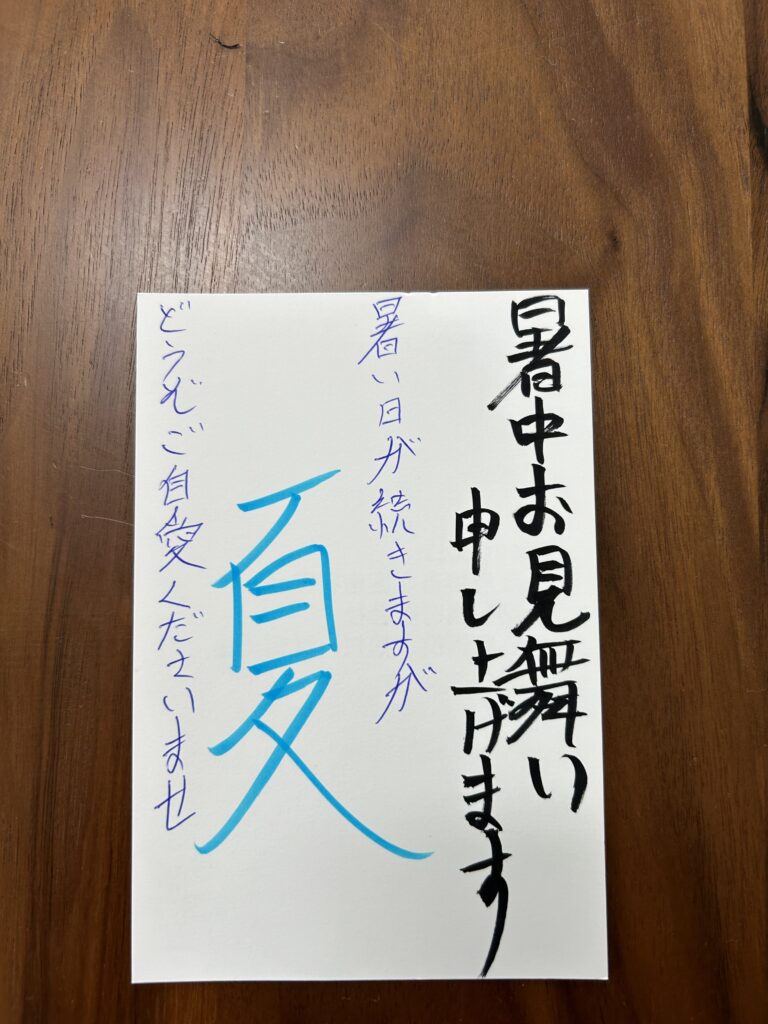 暑中お見舞い
申し上げます
暑い日が続きますが
夏
どうぞご自愛くださいませ